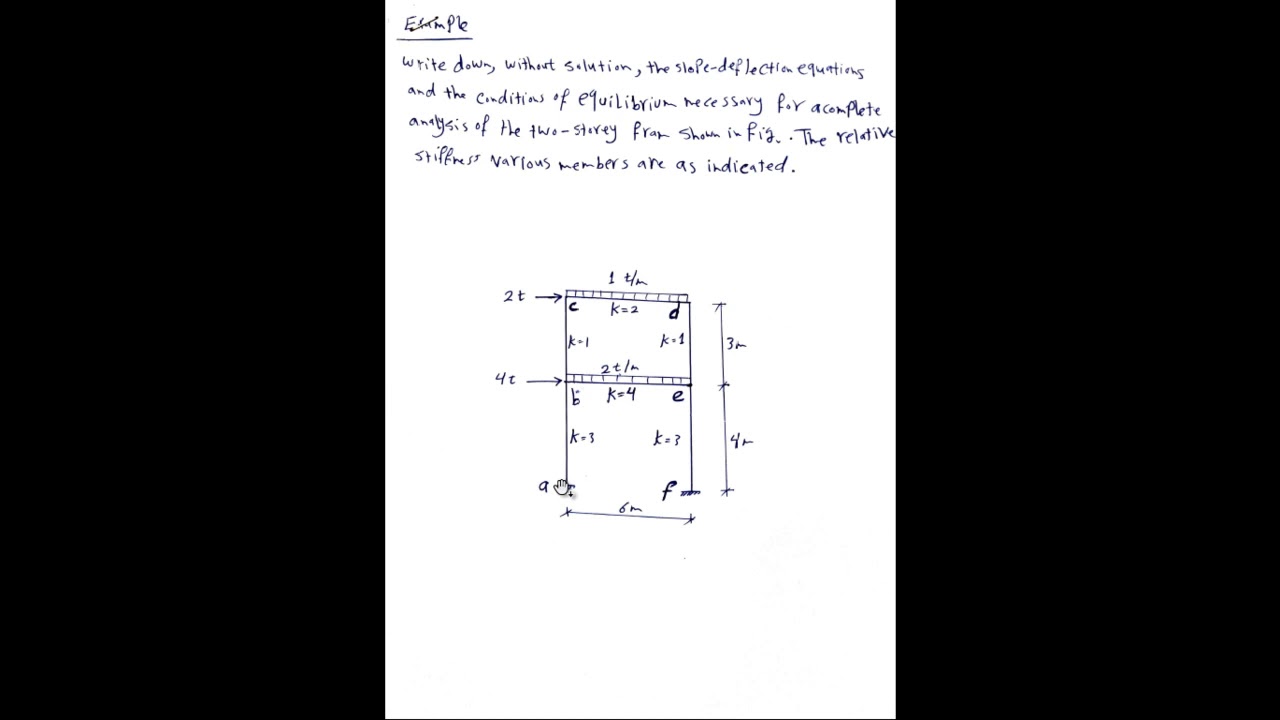 Example
Write down, without solution, the slope-deflection equations
and the conditions of equilibrium necessary for acomplete
analysis of the two-storey fram shown in fig.. The relative
stiffness various members are as indicated.
1 t/m
2t
c
k=2
d
k=1
k=1
3m
2t/m
4t
b
k=4
e
k=3
k=3
4m
a
f
6m